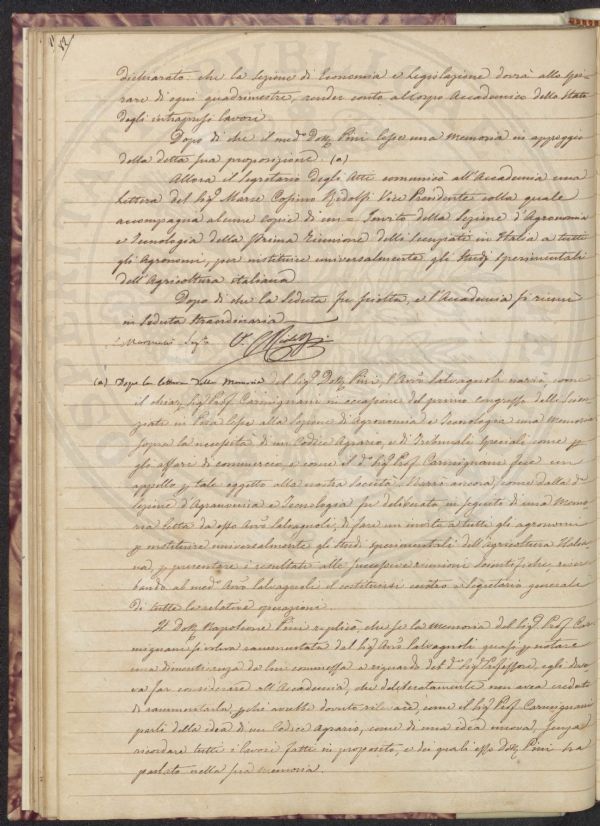 dichiarato: che la Sezione di Economia e Legislazione dovrà allo spi-
rare di ogni quadrimestre, render conto al Corpo Accademico dello Stato
degli intrapresi lavori.
Dopo di che il med.º Dott. Pini lesse una Memoria in appoggio
della detta sua proposizione. (a)
Allora il Segretario degli Atti comunicò all'Accademia una
Lettera del Sig.r March. Cosimo Ridolfi Vice Presidente colla quale
accompagna alcune copie di un = Invito della Sezione d'Agronomia
e Tecnologia della Prima Riunione delli Scienziati in Italia a tutti
gli Agronomi, per instituire universalmente gli Studj Sperimentali
dell'Agricoltura italiana.
Dopo di che la Seduta fu sciolta, e l'Accademia si riunì
in Seduta Straordinaria
V.º CRidolfi
(a) Dopo la lettura della Memoria del Sig.r Dott. Pini, l'Avv.º Salvagnoli narrò, come
il chiar. Sig.r Prof. Carmignani in occasione del primo congresso delli Scien-
ziati in Pisa lesse alla Sezione di Agronomia e Tecnologia una Memoria
sopra la necessità di un Codice Agrario, e di Tribunali speciali come p
gli affari di commercio, e come il d.º Sig.r Prof. Carmignani fece un
appello p tale oggetto alla nostra Società. Narrò ancora, come dalla d.a
Sezione d'Agronomia e Tecnologia fu deliberato in seguito di una Memo-
ria letta da esso Avv.º Salvagnoli, di fare un invito a tutti gli agronomi
p instituire universalmente gli Studj sperimentali dell'agricoltura Italia-
na, p presentare i resultati alle successive riunioni scientifiche, riser-
bando al med.º Avv.º Salvagnoli il costituirsi centro e Segretario generale
di tutte le relative operazioni.
Il Dott. Napoleone Pini replicò, che se la Memoria del Sig.r Prof. Car-
mignani si voleva rammentata dal Sig.r Avv.º Salvagnoli quasi p notare
una dimenticanza da lui commessa a riguardo del d.º Sig.r Professore, egli dove-
va far considerare all'Accademia, che deliberatamente non avea creduto
di rammentarla, p chè avrebbe dovuto rilevare, come il Sig.r Prof. Carmignani
parli della idea di un Codice Agrario, come di una idea nuova, senza
ricordare tutti i lavori fatti in proposito, e dei quali esso Dott. Pini ha
parlato nella sua memoria.